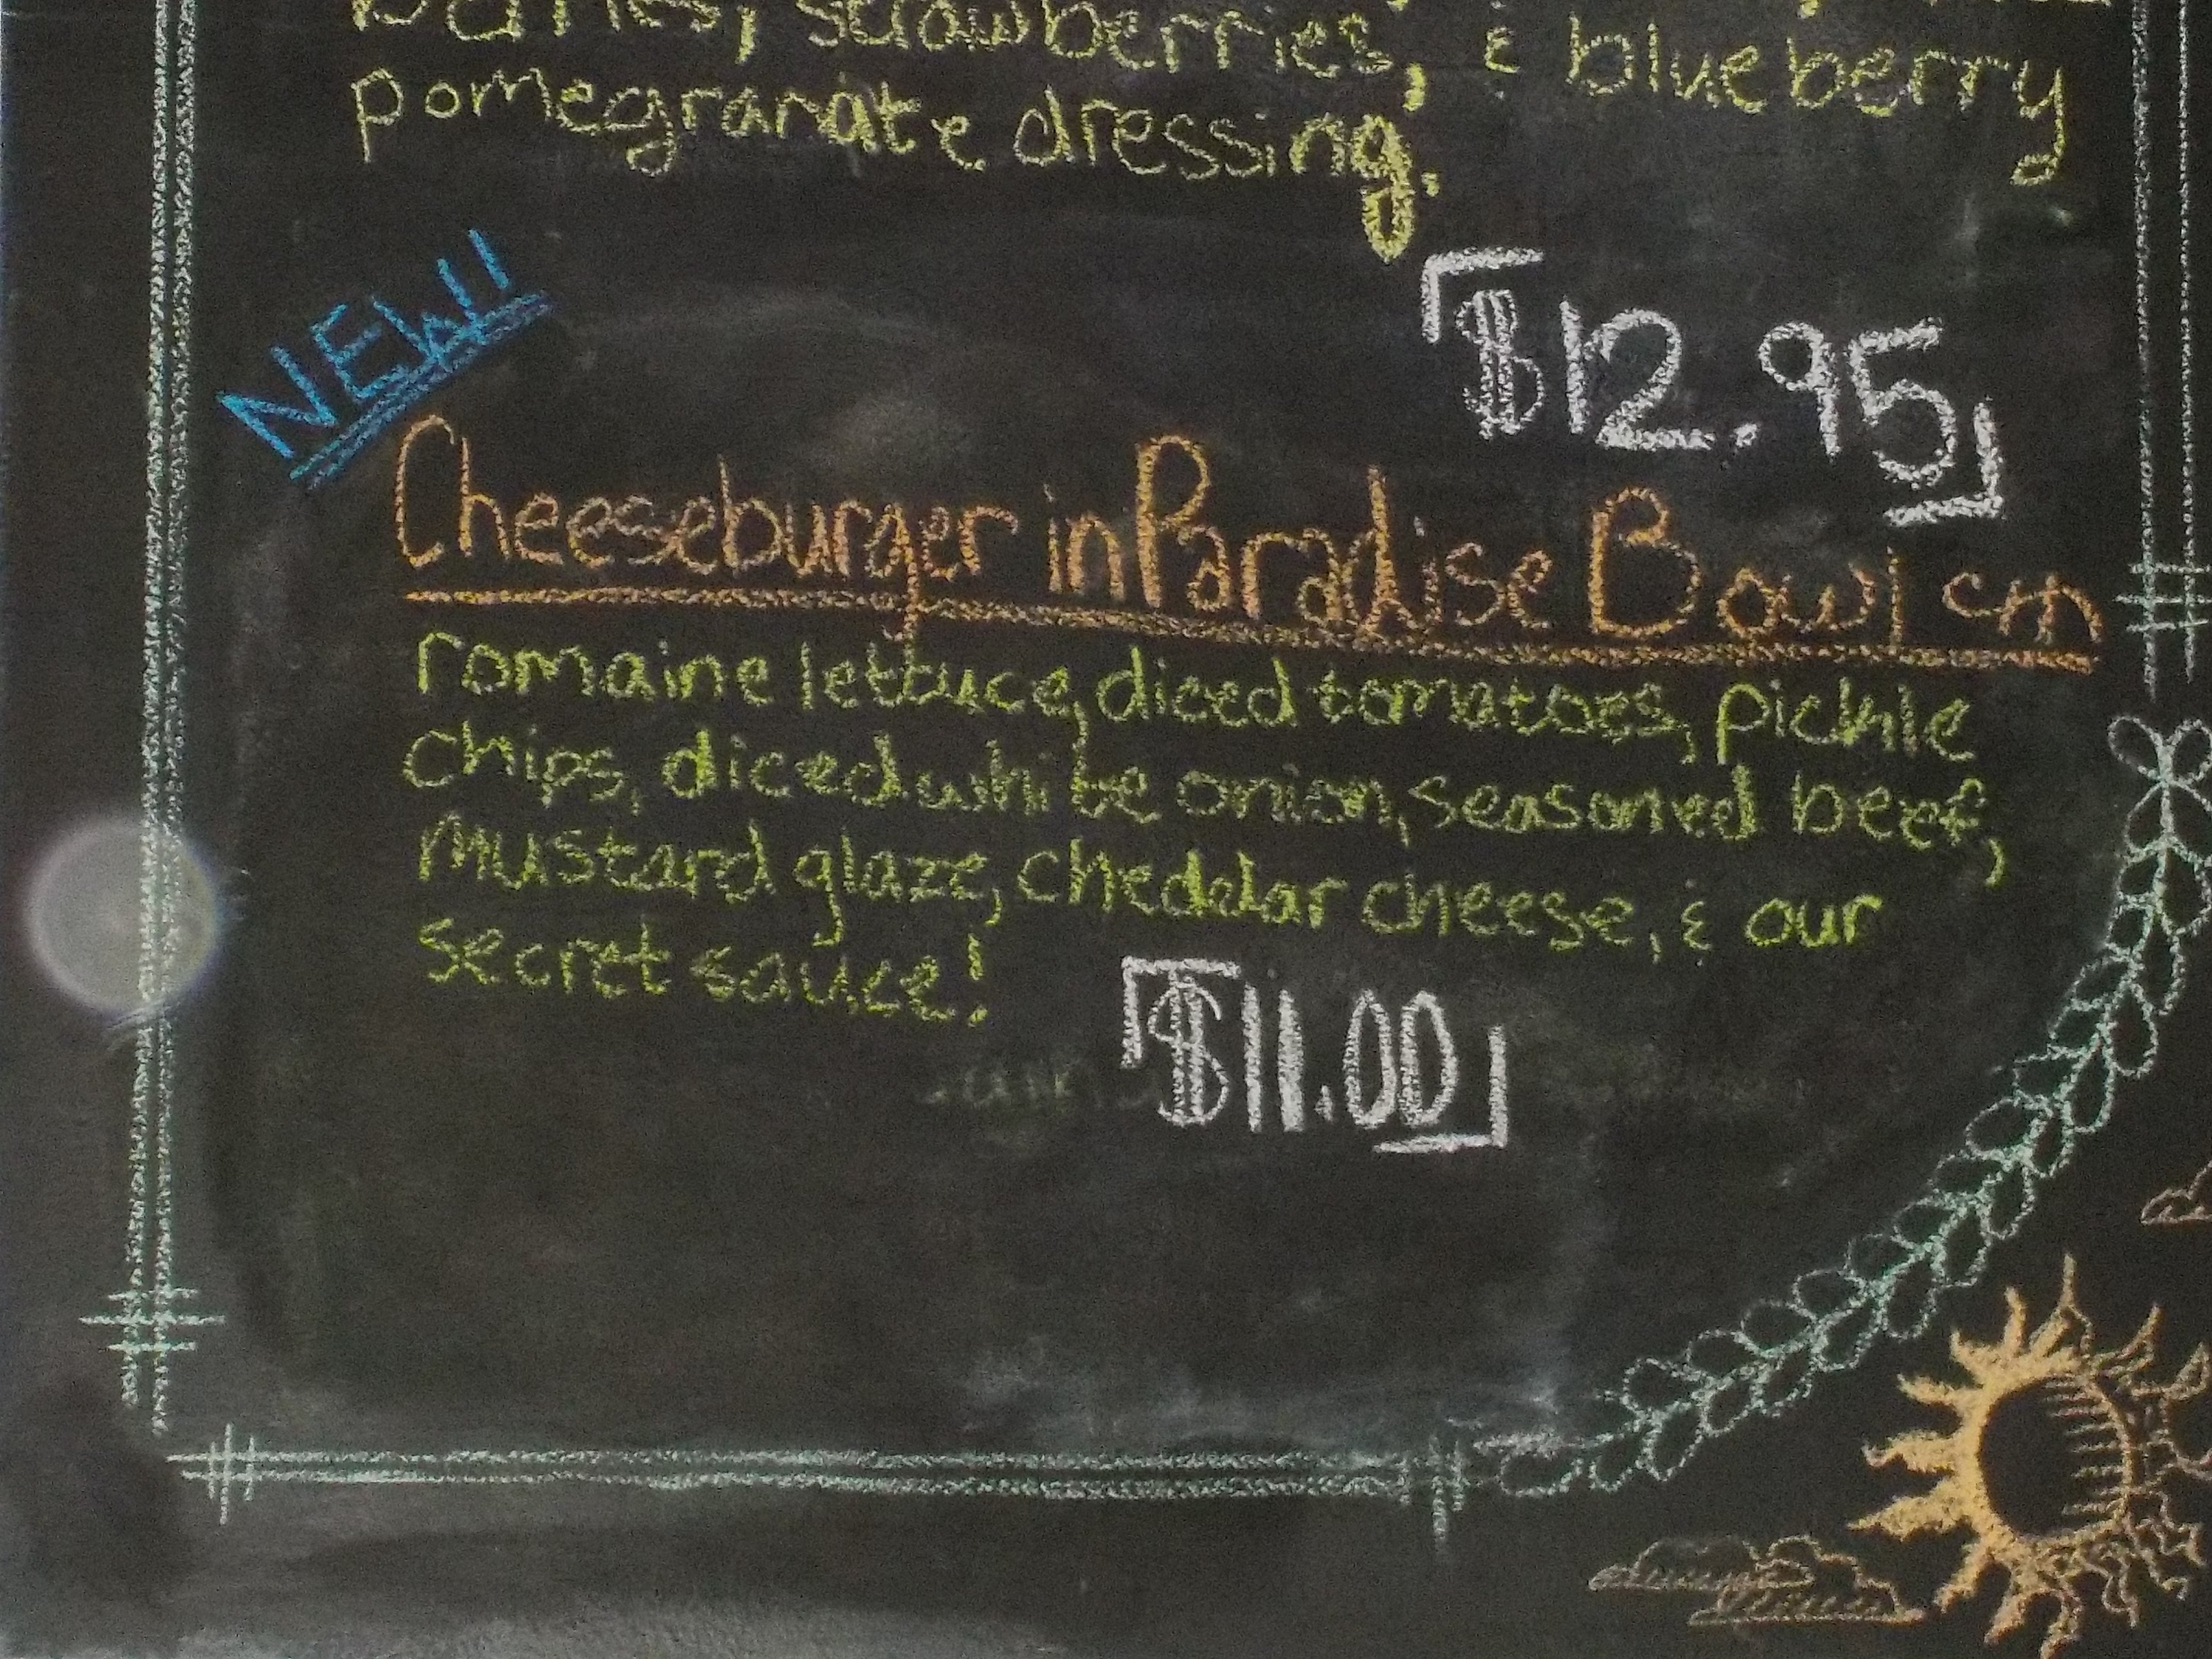 strawberries, & blueberry
pomegranate dressing.
$12.95
NEW!
Cheeseburger in Paradise Bowl
romaine lettuce, diced tomatoes, pickle
chips, diced white onion, seasoned beef,
mustard glaze, cheddar cheese, & our
secret sauce!
$11.00